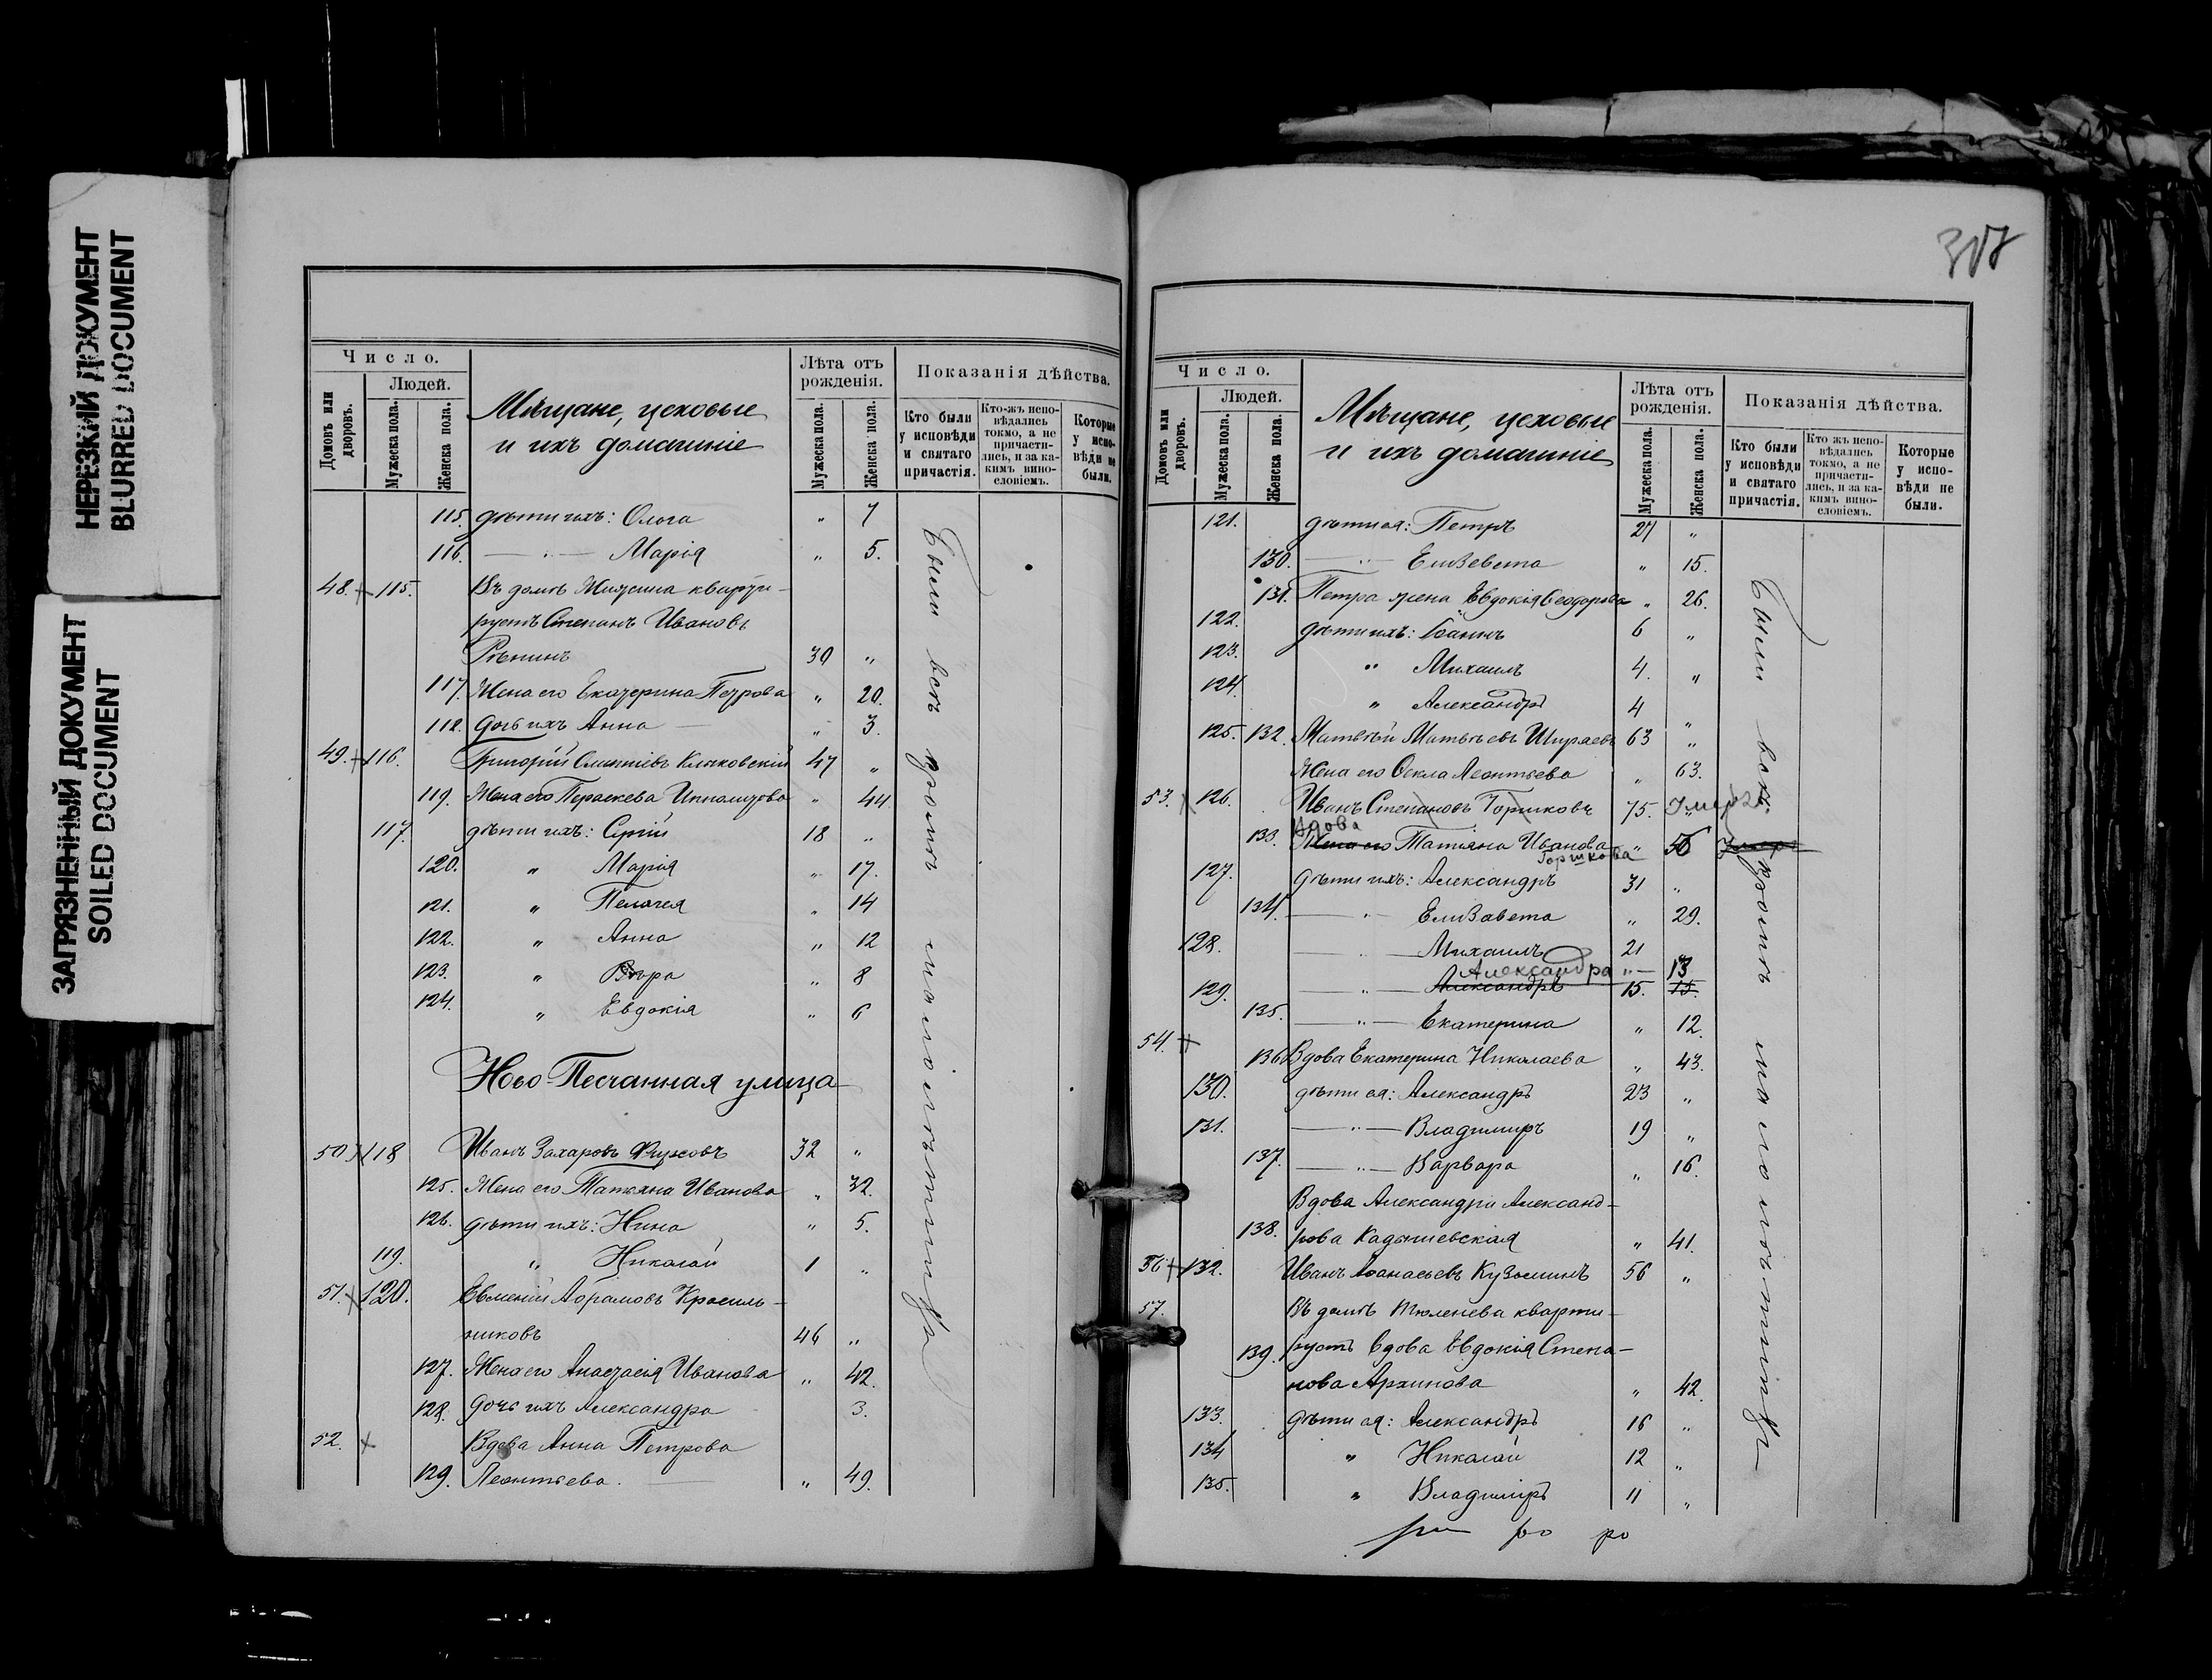 НЕРЕЗКИЙ ДОКУМЕНТ
BLURRED DOCUMENT
ЗАГРЯЗНЕННЫЙ ДОКУМЕНТ
SOILED DOCUMENT
Число.
Домовъ или дворовъ.
Людей.
Мужеска пола.
Женска пола.
Мѣщане, цеховые
и ихъ домашніе
Лѣта отъ рожденія.
Мужеска пола.
Женска пола.
Показанія дѣйства.
Кто были у исповѣди и святаго причастія.
Кто-жъ исповѣдались токмо, а не причастились, и за какимъ винословіемъ.
Которые у исповѣди не были.
115. дѣти ихъ: Ольга " 7
116. — " — Марія " 5.
48. + 115. Въ домѣ кварти-
руетъ Степанъ Ивановъ
Рѣпинъ 30 "
117. Жена его Екатерина Петрова " 20.
118. дочь ихъ Анна — " 3.
49. + 116. Григорій 47 "
119. Жена его Параскева " 44
117. дѣти ихъ: Сергій 18 "
120. " Марія " 17.
121. " Пелагея " 14
122. " Анна " 12
123. " Вѣра " 8
124. " Евдокія " 6
Ново-Песчанная улица
50 + 118 Иванъ Захаровъ 32 "
125. Жена его Татьяна Иванова " 32.
126. дѣти ихъ: Нина " 5.
119. " Николай 1 "
51. + 120. Евменій Абрамовъ Красиль-
никовъ 46 "
127. Жена его Анастасія Иванова " 42.
128. дочь ихъ Александра 3.
52. + Вдова Анна Петрова
129. Леонтьева. — " 49.
Были всѣ кромѣ малолѣтнихъ
Число.
Домовъ или дворовъ.
Людей.
Мужеска пола.
Женска пола.
Мѣщане, цеховые
и ихъ домашніе
Лѣта отъ рожденія.
Мужеска пола.
Женска пола.
Показанія дѣйства.
Кто были у исповѣди и святаго причастія.
Кто жъ исповѣдались токмо, а не причастились, и за какимъ винословіемъ.
Которые у исповѣди не были.
121. дѣти ея: Петръ 27 "
130. — " — Елизавета " 15.
131. Петра жена Евдокія Ѳеодорова " 26.
122. дѣти ихъ: Іоаннъ 6 "
123. " Михаилъ 4. "
124. " Александръ 4 "
125. 132. Матвѣй Матвѣевъ Ширяевъ 63 "
Жена его Ѳекла Леонтьева " 63.
53. + 126. Иванъ Степановъ Горшковъ 75. Умеръ
133. Вдова
Жена его Татіана Иванова " 56 Умеръ
Горшкова
127. дѣти ихъ: Александръ 31 "
134. — " — Елизавета " 29.
128. — " — Михаилъ 21
Александра " — 13
129. — " — Александръ 15. 15.
135. — " — Екатерина " 12.
54. + 136. Вдова Екатерина Николаева " 43.
130. дѣти ея: Александръ 23 "
131. — " — Владимиръ 19 "
137. — " — Варвара " 16.
Вдова Александра Александ-
138. рова " 41.
56 + 132. Иванъ Аѳанасьевъ Кузьминъ 56 "
57. Въ домѣ Тюленева кварти-
139. руетъ вдова Евдокія Степа-
нова Архипова " 42
133. дѣти ея: Александръ 16 "
134 " Николай 12 "
135. " Владиміръ 11 "
Были всѣ кромѣ малолѣтнихъ